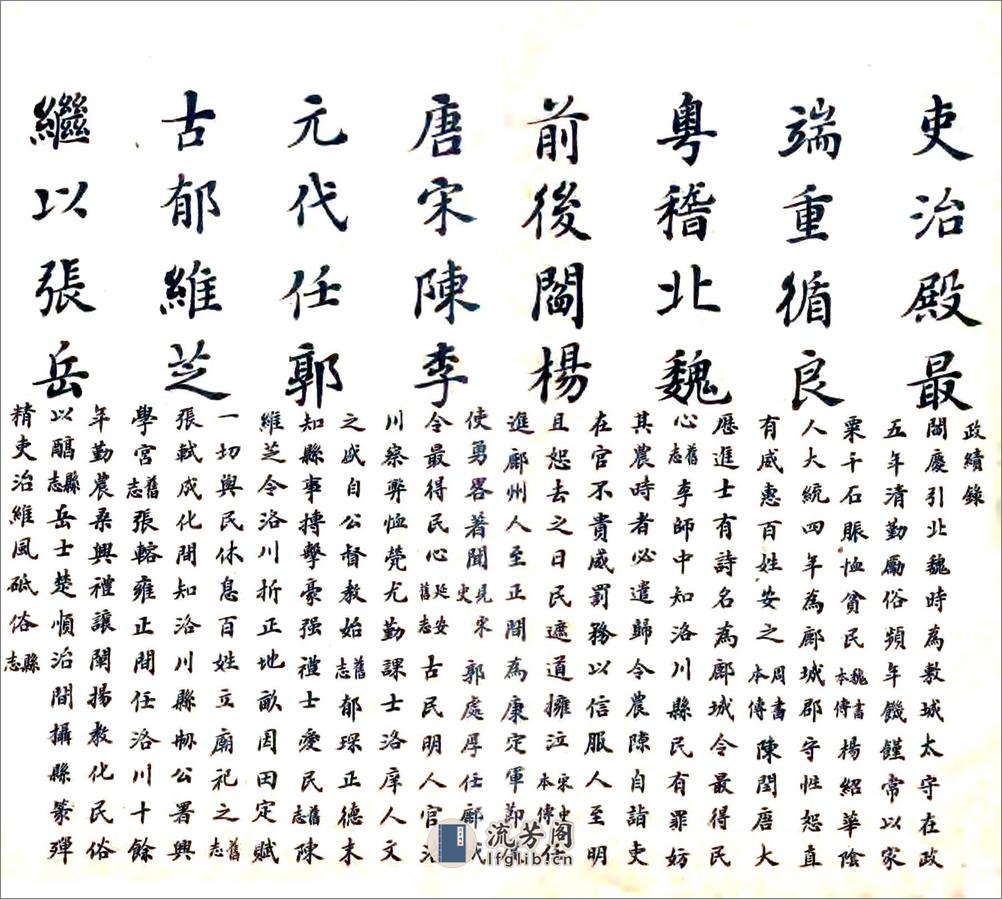 吏治殿最
端重循良
粵稽北魏
前後閻楊
唐宋陳李
元代任郭
古郁維芝
繼以張岳
政績錄
閻慶引北魏時為敷城太守在政
五年清勤勵俗頻年饑饉常以家
粟千石賑恤貧民魏書本傳楊紹華陰
人大統四年為鄜城郡守性恕直
有威惠百姓安之周書本傳陳閏唐大
歷進士有詩名為鄜城令最得民
心舊志李師中知洛川縣民有罪妨
其農時者必遣歸令農陳自詣吏
在官不貴威罰務以信服人至明
且恕去之日民遮道擁泣宋史本傳任
進鄜州人至正間為康定軍節
使勇畧著聞見宋史郭處厚任鄜
令最得民心延安舊志古民明人官洛
川察弊恤煢尤勤課士洛庠人文
之盛自公督教始舊志郁琛正德末
知縣事摶擊豪强禮士愛民舊志陳
維芝令洛川折正地畝因田定賦
一切與民休息百姓立廟祀之舊志
張軾成化間知洛川縣刱公署興
學宮舊志張轅雍正間任洛川十餘
年勤農桑興禮讓闡揚教化民俗
以醇縣志岳士楚順治間攝縣篆殫
精吏治維風砥俗縣志
流芳阁
lfglib.cn